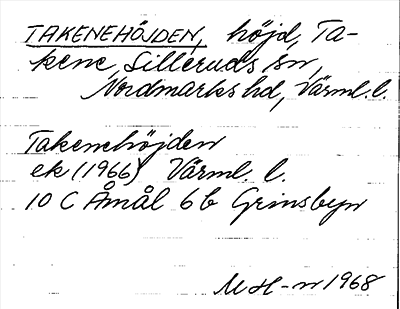 TAKENEHÖJDEN, höjd, Ta-
kene, Silleruds sn,
Nordmarks hd, Värml. l.
Takenehöjden
ek (1966) Värml. l.
10 C Åmål 6 b Grinsbyn
1968